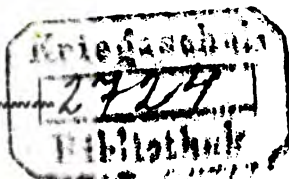 Kriegsschule
2724
Bibliothek